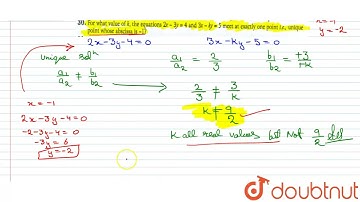 30. For what value of k, the equations 2x - 3y = 4 and 3x - ky = 5 meet at exactly one point i.e., unique
point whose abscissa is -1?
x = -1
y = -2
2x - 3y - 4 = 0
3x - ky - 5 = 0
unique solⁿ
a₁/a₂ ≠ b₁/b₂
a₁/a₂ = 2/3
b₁/b₂ = +3/+k
2/3 ≠ 3/k
k ≠ 9/2
K all real values but Not 9/2
x = -1
2x - 3y - 4 = 0
-2 - 3y - 4 = 0
-3y = 6
y = -2
doubtnut